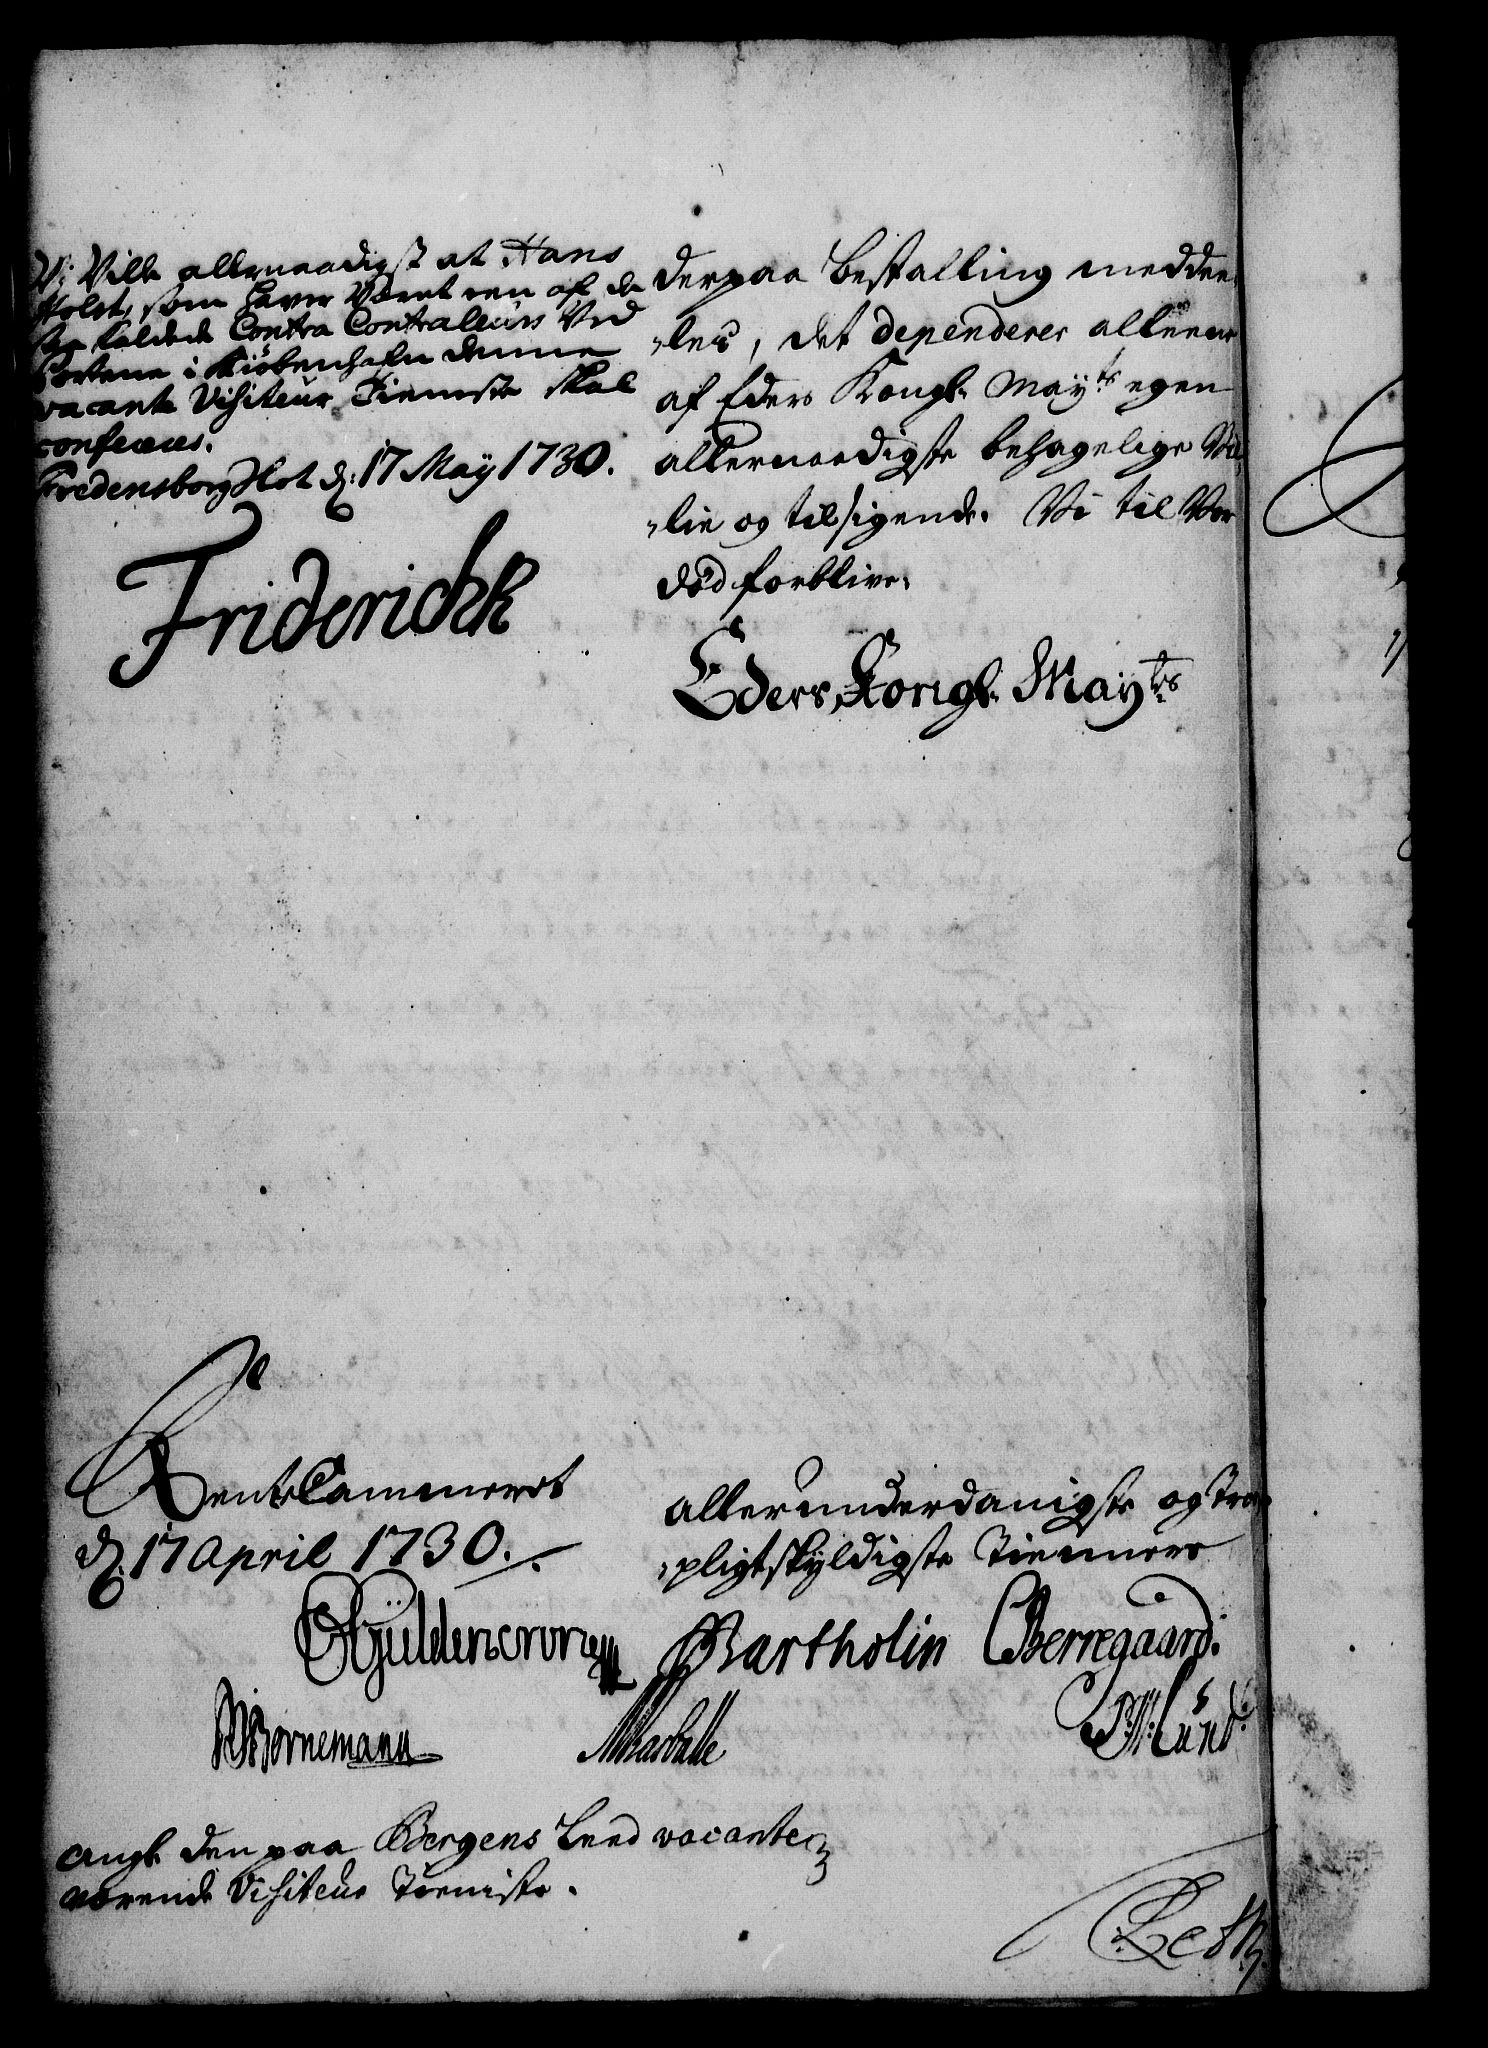 Vi Ville allernaadigst at Hans
Holst, som haver Været een af de
saa kaldede Contra Contraleurs Ved
Portene i Kiøbenhafn denne
vacante Visiteur Tieneste skal
confereres.
Fredensborg Slot d: 17 May 1730.
Friderich R
derpaa Bestalling meddee¬
„les, det dependerer alleene
af Eders Kongl. Mayts egen
allernaadigste behagelige Vil¬
„lie og tilsigende. Vi til Vor
død forblive.
Eders Kongl. Mayts
RenteCammeret
d. 17 April 1730.
allerunderdanigste og Troe
„pligtskyldigste Tiennere
Güldencrone
Bartholin
Berregaard.
Bornemann
Lünd.
Angl. den paa Bergens Leed vacante
værende Visiteur Tieniste.